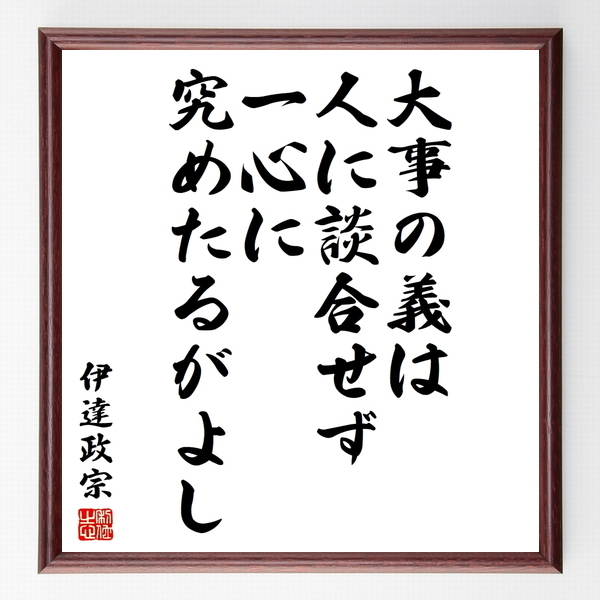 大事の義は
人に談合せず
一心に
究めたるがよし
伊達政宗